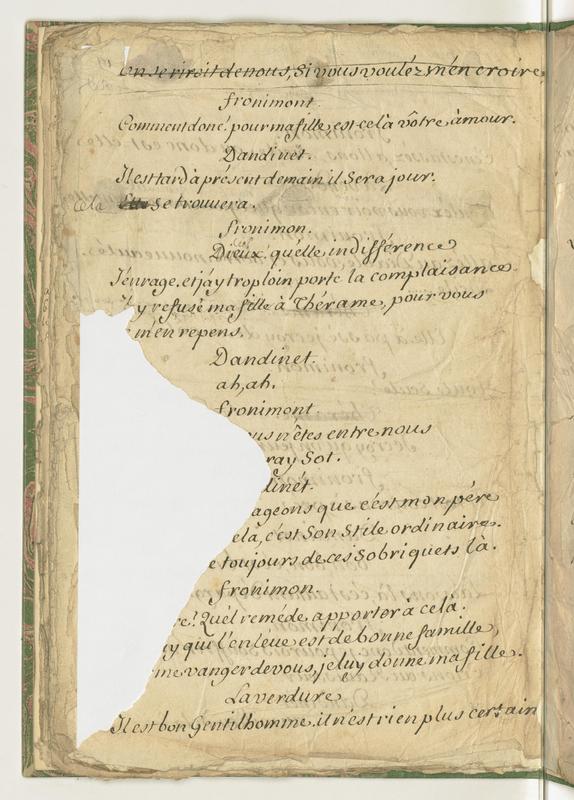 On se riroit de nous, si vous voulez m'en croire
fronimont.
Comment donc, pour ma fille, est cela vôtre amour.
Dandinet.
Il est tard à présent demain il sera jour.
Cela se trouuera.
fronimon.
Dieux quelle indifférence
J'enrage, et j'ay trop loin porté la complaisance
J'y refusé ma fille à Thérame, pour vous
m'en repens.
Dandinet.
ah, ah.
fronimont.
us n'êtes entre nous
ray Sot.
dinét.
ageons que c'est mon pére
ela, c'est son stile ordinaire.
e toujours de ces sobriquets là.
fronimon.
re! Quel reméde apporter à cela.
uy qui l'enléue est de bonne famille,
me vanger de vous, je luy donne ma fille.
Laverdure
Il est bon Gentilhomme, il n'est rien plus certain